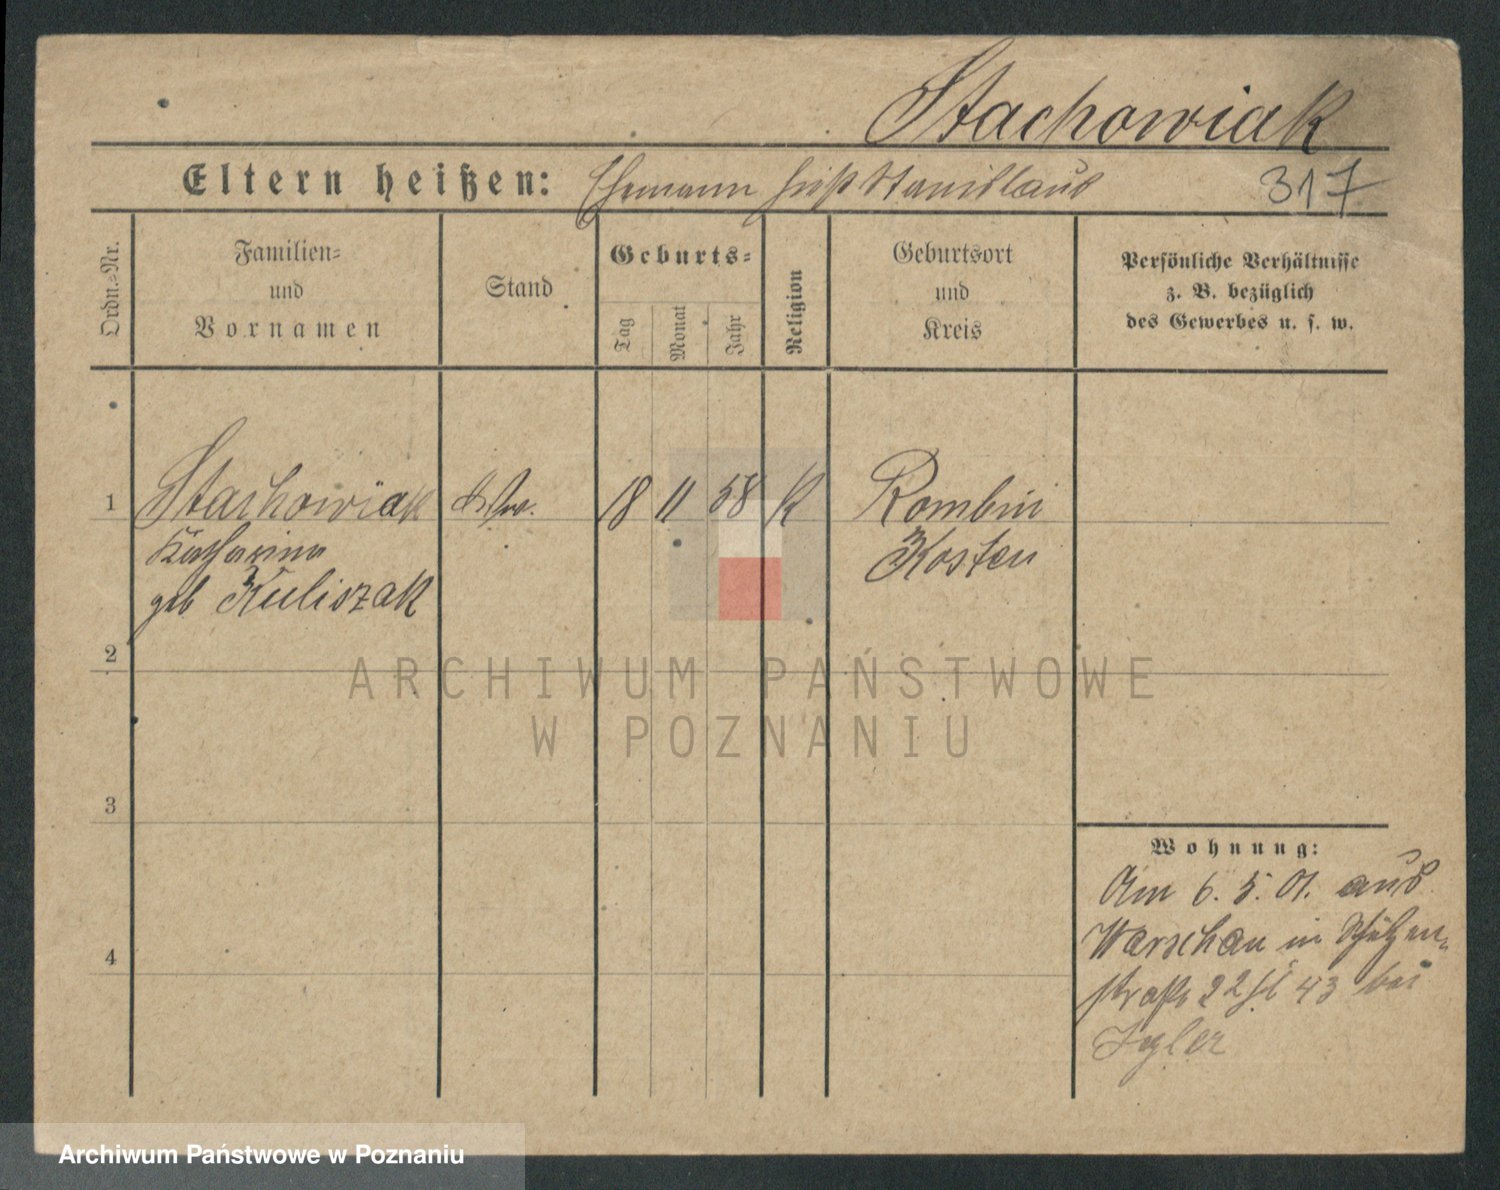 Stachowiak
Eltern heißen: Ehemann heißt Stanislaus 317
Ordn.-Nr.
Familien-
und
Vornamen
Stand
Geburts-
Tag
Monat
Jahr
Religion
Geburtsort
und
Kreis
Persönliche Verhältnisse
z. B. bezüglich
des Gewerbes u. s. w.
1 Stachowiak 18 11 58 K Rombin
Katharina Kosten
geb Kuliszak
2
ARCHIWUM PAŃSTWOWE
W POZNANIU
3
Wohnung:
Am 6. 5. 01. aus
Warschau in Schützen-
straße 22 43 bei
4
Archiwum Państwowe w Poznaniu